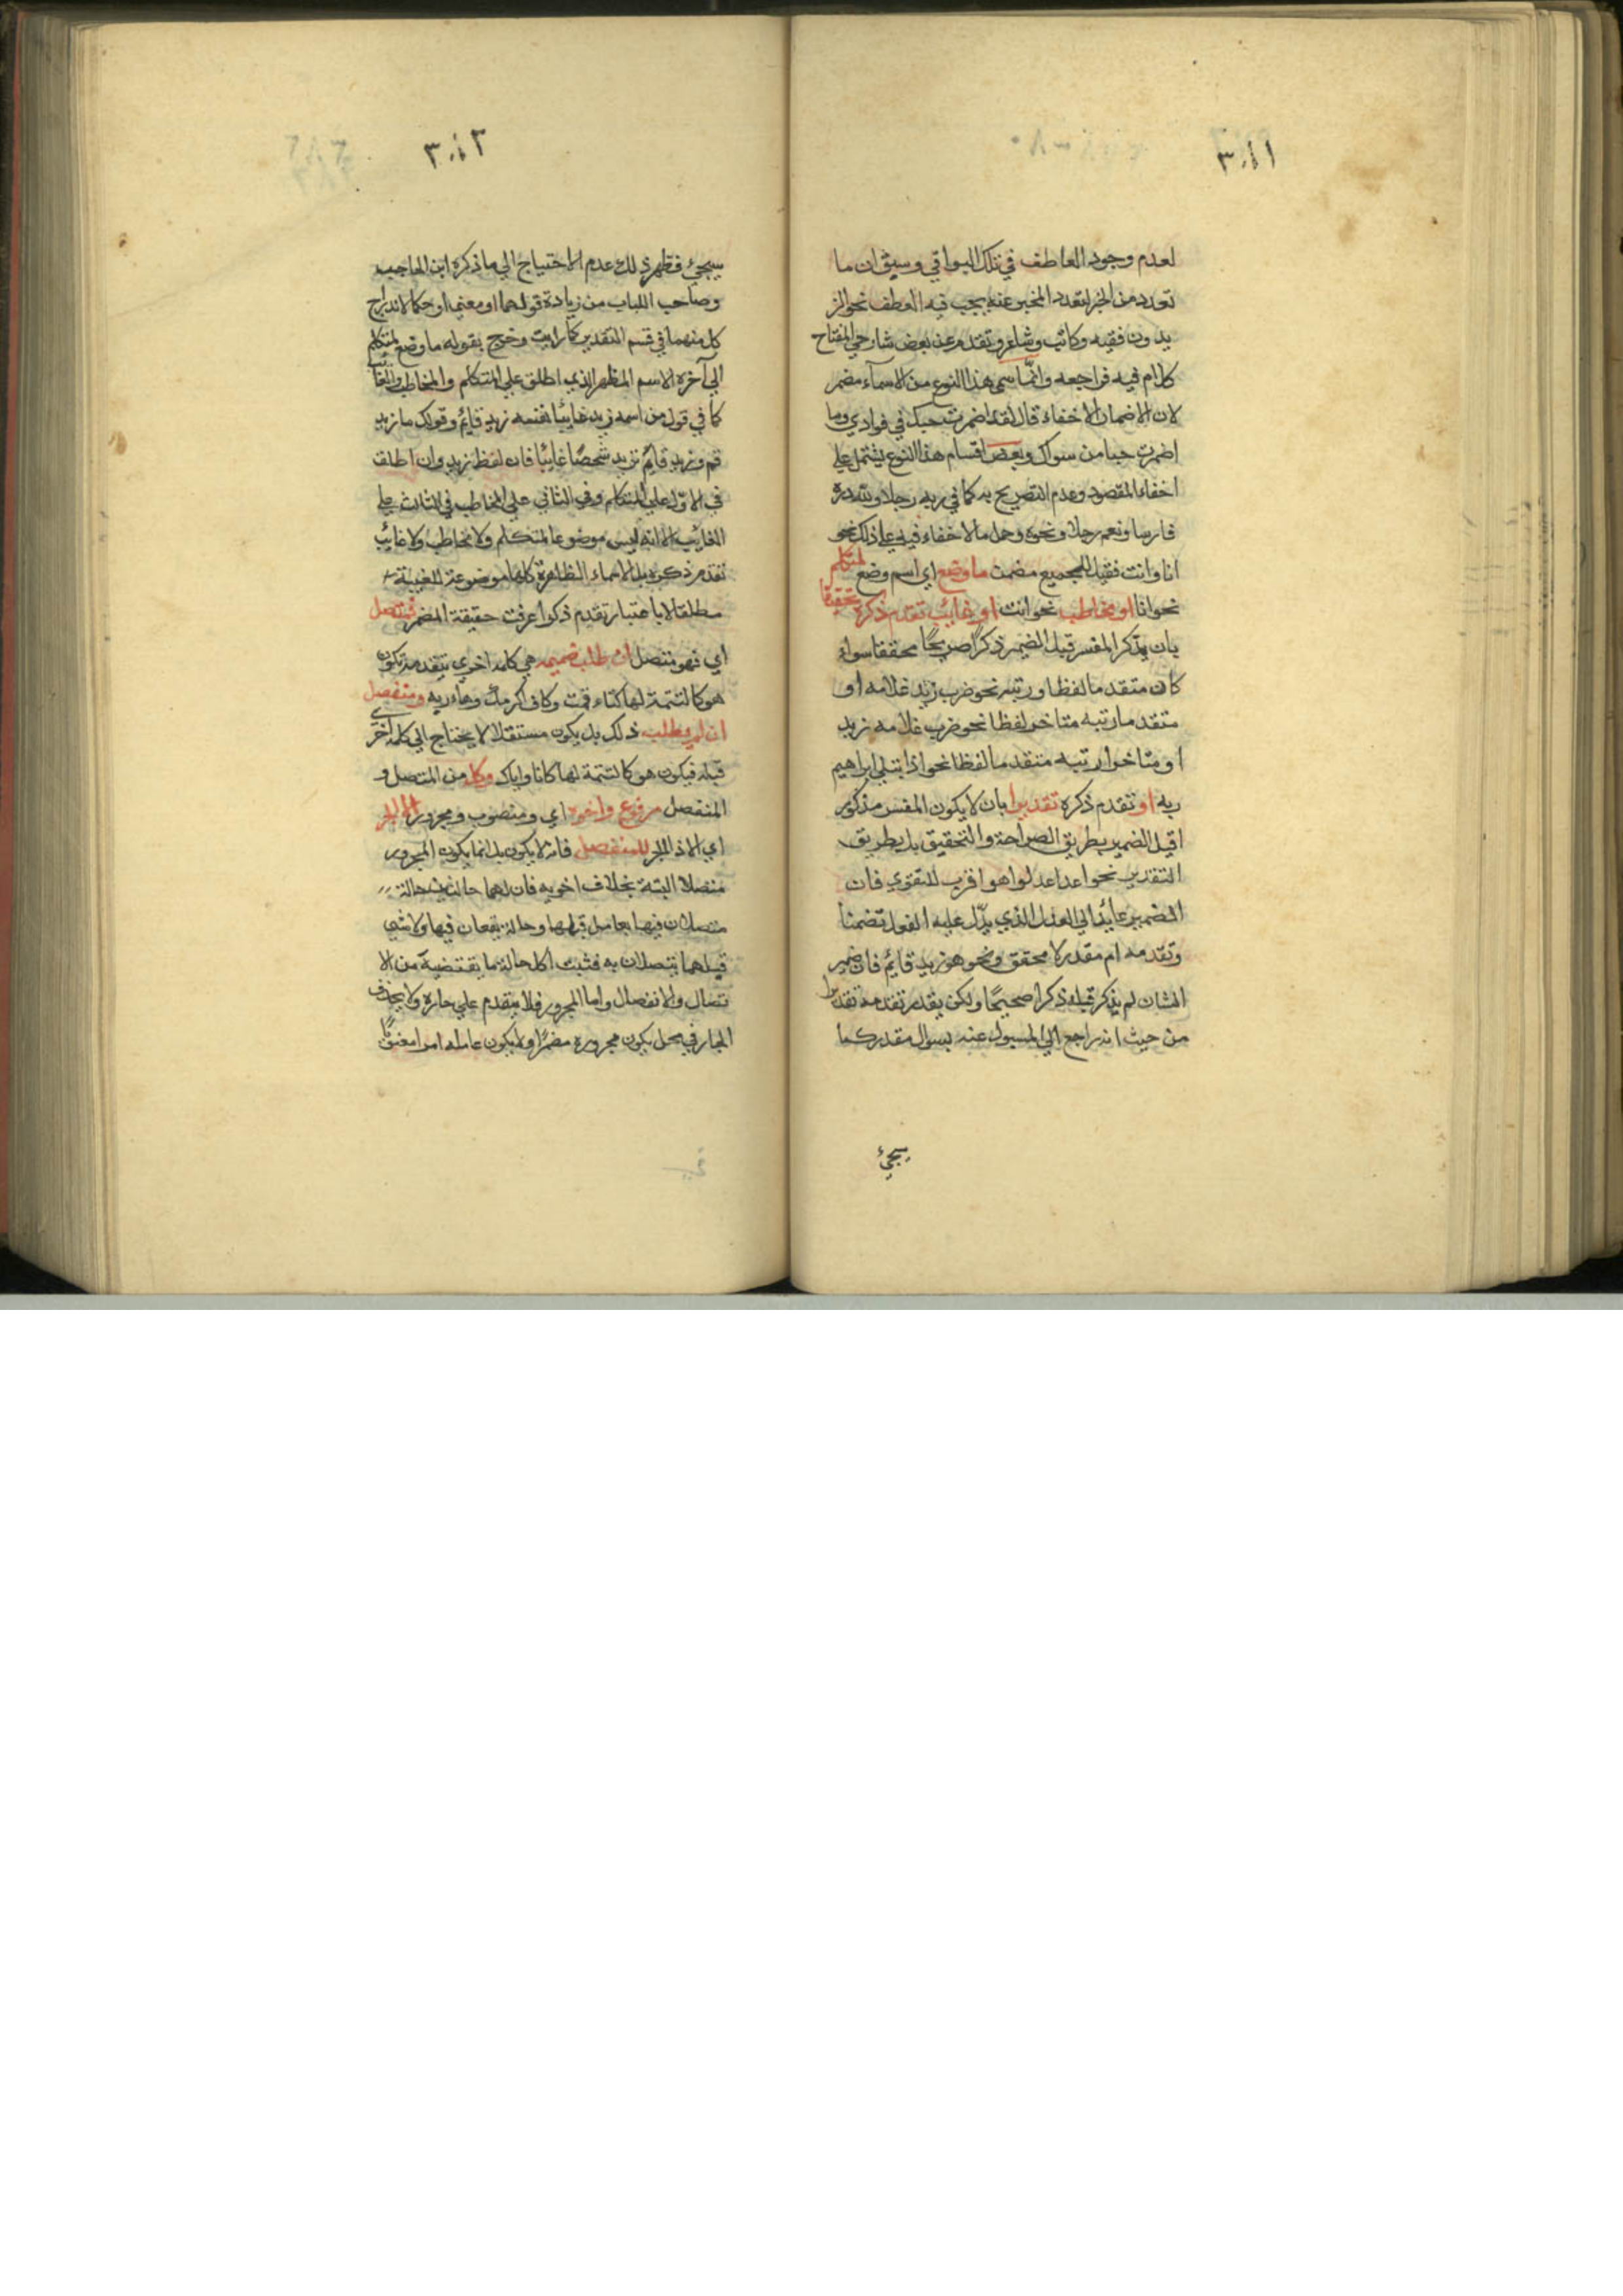 لعدم وجود العاطف في تلك البواقي وسيق ان ما
تعدد من الخبر لتعدد المخبر عنه يجب فيه العطف نحو الز
يدون فقيه وكاتب وشاعر وتقدم عن بعض شارحي المفتاح
كلام فيه فراجعه وانما سمى هذا النوع من الاسماء مضمر
لان الاضمار الاخفاء قال لقد اضمرت حبك في فوادي وما
اضمرت حبا من سواك وبعض اقسام هذا النوع يشتمل على
اخفاء المقصود وعدم التصريح به كما في ربه رجلا ولله دره
فارسا ونعم رجلا ونحوه وحمل ما لا خفاء فيه على ذلك نحو
انا وانت فقيل للجميع مضمر ما وضع اي اسم وضع لمتكلم
نحو انا او مخاطب نحو انت او غائب تقدم ذكره تحقيقا
بان يذكر المفسر قبل الضمير ذكرا صريحا محققا سواء
كان متقدما لفظا ورتبه نحو ضرب زيد غلامه او
متقدما رتبه متاخر لفظا نحو ضرب غلامه زيد
او متاخرا رتبه متقدما لفظا نحو اذا بتلي ابراهيم
ربه او تقدم ذكره تقديرا بان لا يكون المفسر مذكور
اقبل الضمير بطريق الصراحة والتحقيق بل بطريق
التقدير نحو اعدا عدلوا هو اقرب للتقوي فان
الضمير عائد الي العدل الذي يدّل عليه الفعل تضمنا
وتقدمه ام مقدر لا محقق ونحو هو زيد قائم فان ضمير
الشان لم يذكر قبله ذكرا صحيحا ولكن يقدر تقدمه تقديرا
من حيث انه راجع الي المسبول عنه بسوال مقدر كما
سيجئ
٣٠١٢
سيجئ فظهر ذلك عدم الاحتياج الي ما ذكره ابن الحاجب
وصاحب اللباب من زيادة قولهما او معني او حكما لاندراج
كل منهما في قسم التقدير كما رايت وخرج بقوله ما وضع لمتكلم
الي آخره الاسم المظهر الذي اطلق علي المتكلم والمخاطب والغائب
كما في قول من اسمه زيد غايبًا نفسه زيد قايم وقولك ما زيد
قم وزيد قايم تريد شخصًا غايبًا فان لفظ زيد وان اطلق
في الاول علي المتكلم وفي الثاني علي المخاطب في الثالث علي
الغايب الا انه ليس موضوعا لمتكلم ولا مخاطب ولا غائب
تقدم ذكره بل الاسماء الظاهرة كلها موضوعة للغيبة
مطلقا لا باعتبار تقدم ذكر اعرفت حقيقة المضمر فمتصل
اي فهو متصل ان طلب ضميمه هي كلمه اخرى تتقدمه تكون
هو كالتتمة لها كتاء قمت وكاف اكرمك وهاء ربه ومنفصل
ان لم يطلب ذلك بل يكون مستقلا لا يحتاج الي كلمه اخرى
قبله فيكون هو كالتتمة لها كانا واياك وكل من المتصل و
المنفصل مرفوع واخوه اي ومنصوب ومجرور الا الجر
اي الا ذا الجر للمنفصل فانه لا يكون بل انما يكون المجرور
متصلا البتة بخلاف اخويه فان لهما حالتين حالة
متصلان فيها بعامل قبلهما وحالة يقعان فيها ولا شي
قبلهما يتصلان به فثبت لكل حالة ما يقتضيه من الا
تصال والانفصال واما المجرور فلا يتقدم علي جاره ولا يحذف
الجار في محل يكون مجروره مضمرا ولا يكون عامله امرا معنويًّا